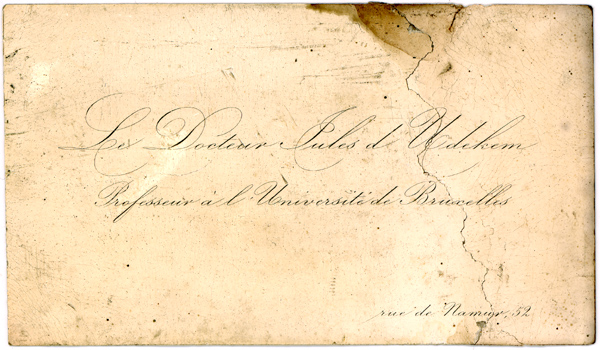 Le Docteur Jules d'Udekem
Professeur à l'Université de Bruxelles
rue de Namur, 52